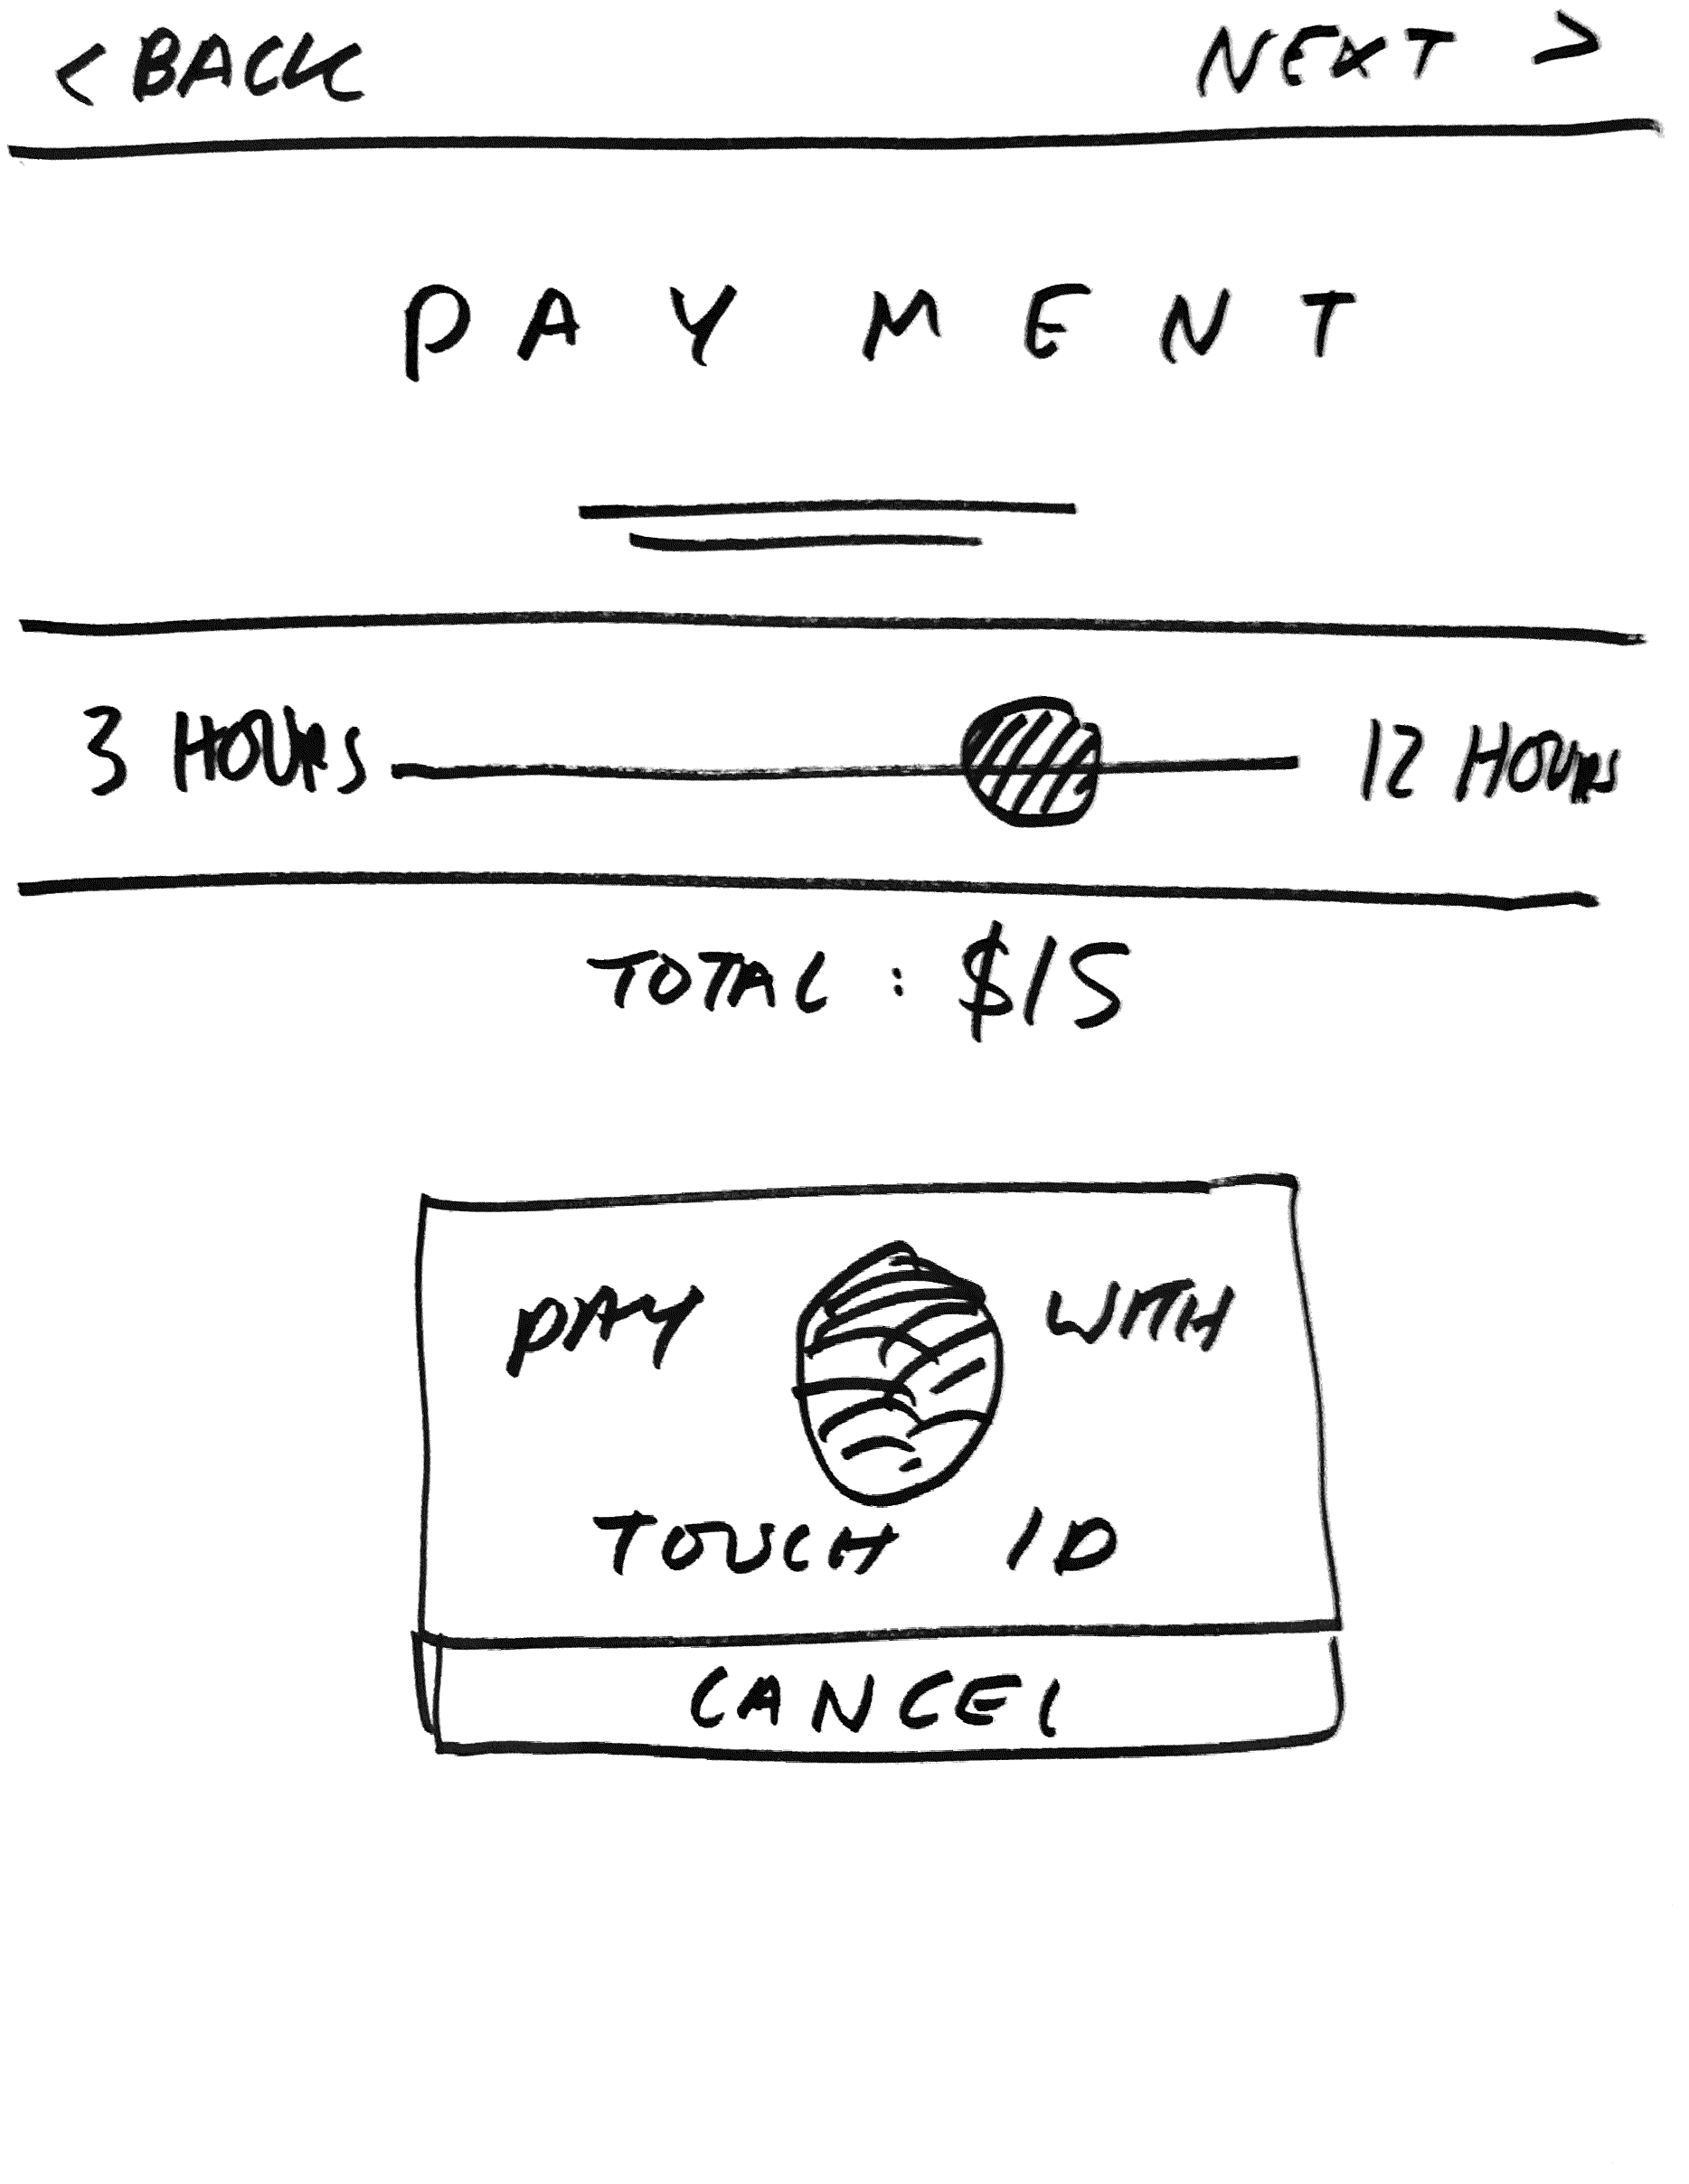 < BACK NEXT >
PAYMENT
3 HOURS 12 HOURS
TOTAL : $15
PAY WITH
TOUCH ID
CANCEL